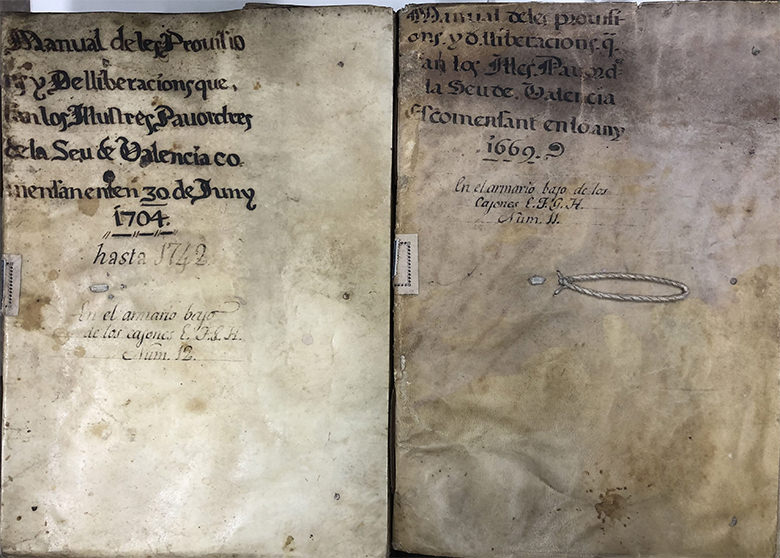 Manual de les Provisio
ns y Delliberacions que,
fan los Illustres Pavordres
de la Seu de Valencia co
mensan en en 30 de Juny
1704.
hasta 1742
En el armario bajo
de los cajones E. F. G. H.
Num. 12.
Manual de les provisi
ons. y d.lliberacions. q̃.
fan los Illes. Pavord.
la Seu de. Valencia
Escomensant en lo any
1669.
En el armario bajo de los
Cajones E. F. G. H.
Num. 11.